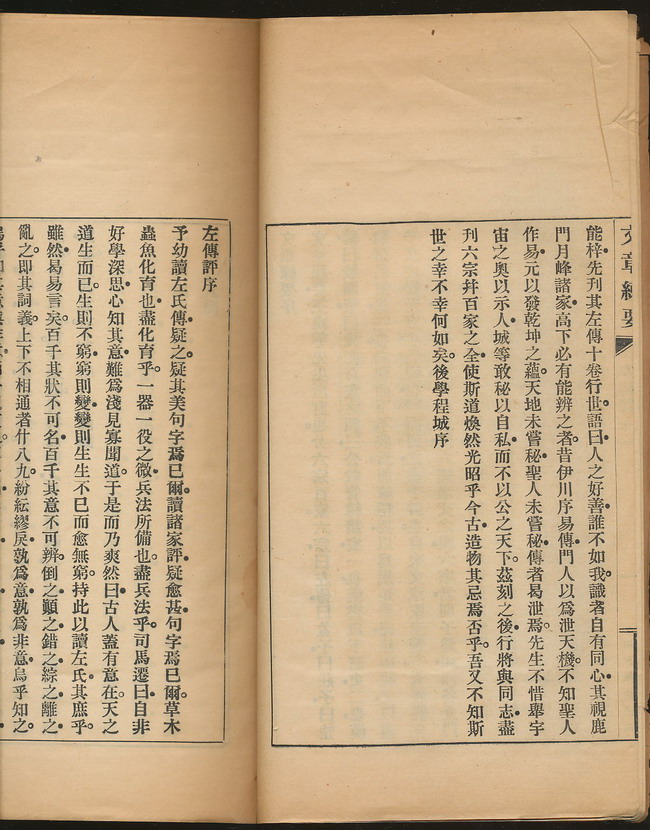 文章練要
能梓先刊其左傳十卷行世語曰人之好善誰不如我識者自有同心其視鹿
門月峰諸家高下必有能辨之者昔伊川序易傳門人以爲泄天機不知聖人
作易元以發乾坤之蘊天地未嘗秘聖人未嘗秘傳者曷泄焉先生不惜舉宇
宙之奧以示人城等敢秘以自私而不以公之天下茲刻之後行將與同志盡
刊六宗幷百家之全使斯道煥然光昭乎今古造物其忌焉否乎吾又不知斯
世之幸不幸何如矣後學程城序
左傳評序
予幼讀左氏傳疑之疑其美句字焉已爾讀諸家評疑愈甚句字焉已爾草木
蟲魚化育也盡化育乎一器一役之微兵法所備也盡兵法乎司馬遷曰自非
好學深思心知其意難爲淺見寡聞道于是而乃爽然曰古人蓋有意在天之
道生而已生則不窮窮則變變則生生不已而愈無窮持此以讀左氏其庶乎
雖然曷易言矣百千其狀不可名百千其意不可辨倒之顚之錯之綜之離之
亂之卽其詞義上下不相通者什八九紛紜繆戾孰爲意孰爲非意烏乎知之